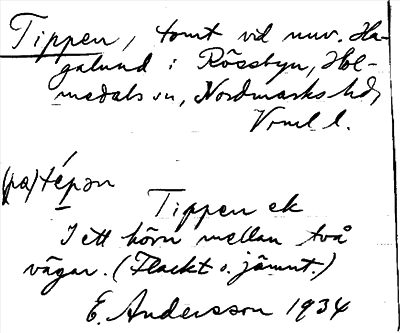 Tippen, tomt vid nuv. Ha-
galund i Rössbyn, Hol-
medals sn, Nordmarks hd,
Vrml l.
(pa) tépən
Tippen ek
I ett hörn mellan två
vägar. (Flackt o. jämnt.)
E. Andersson 1934